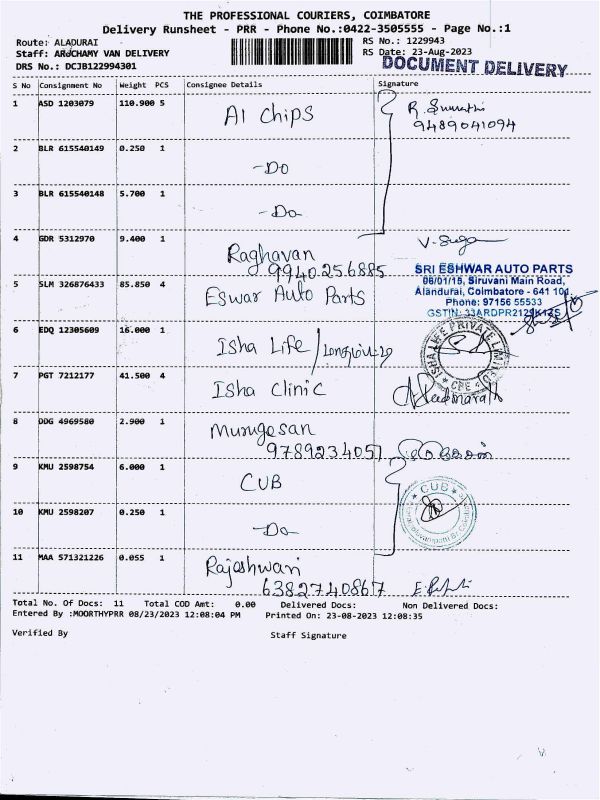 THE PROFESSIONAL COURIERS, COIMBATORE
Delivery Runsheet - PRR - Phone No.:0422-3505555 - Page No.:1
Route: ALADURAI
RS No.: 1229943
Staff: ARJCHAMY VAN DELIVERY
RS Date: 23-Aug-2023
DRS No.: DCJB122994301
DOCUMENT DELIVERY
S No Consignment No Weight PCS Consignee Details Signature
1 ASD 1203079 110.900 5 AI Chips R. Sumathi
9489041094
2 BLR 615540149 0.250 1 -Do
3 BLR 615540148 5.700 1 -Do
4 GDR 5312970 9.400 1 Raghavan V. Suga
9940256885
SRI ESHWAR AUTO PARTS
06/01/15, Siruvani Main Road,
Alandurai, Coimbatore - 641 101.
Phone: 97156 55533
GSTIN: 33ARDPR2129K1Z5
5 SLM 326876433 85.850 4 Eswar Auto Parts
6 EDQ 12305609 16.000 1 Isha Life /
ISHA LIFE PRIVATE LIMITED
CPE
7 PGT 7212177 41.500 4 Isha Clinic
8 DDG 4969580 2.900 1 Murugesan
9789234051
9 KMU 2598754 6.000 1 CUB
CUB
10 KMU 2598207 0.250 1 -Do
11 MAA 571321226 0.055 1 Rajeshwari
6382740867
Total No. Of Docs: 11 Total COD Amt: 0.00 Delivered Docs: Non Delivered Docs:
Entered By :MOORTHYPRR 08/23/2023 12:08:04 PM Printed On: 23-08-2023 12:08:35
Verified By Staff Signature